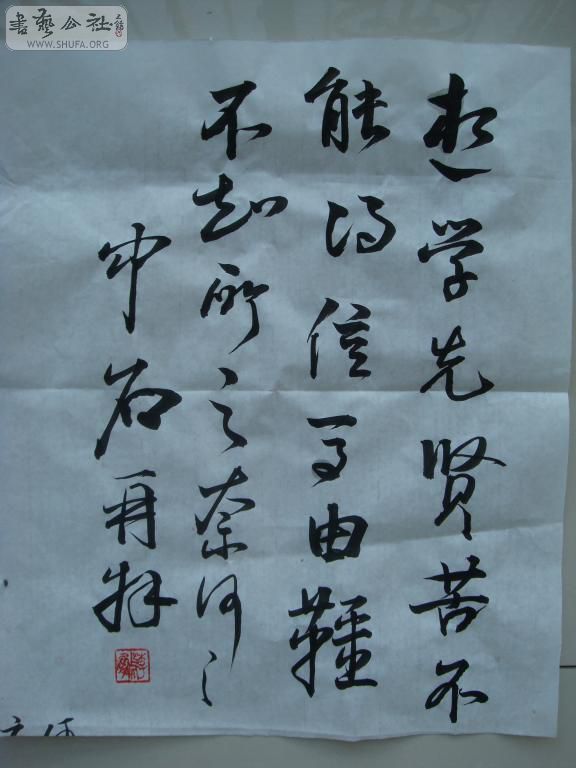 書藝公社
WWW.SHUFA.ORG
想学先贤苦不
能得信马由韁
不知所之奈何
中石再拜